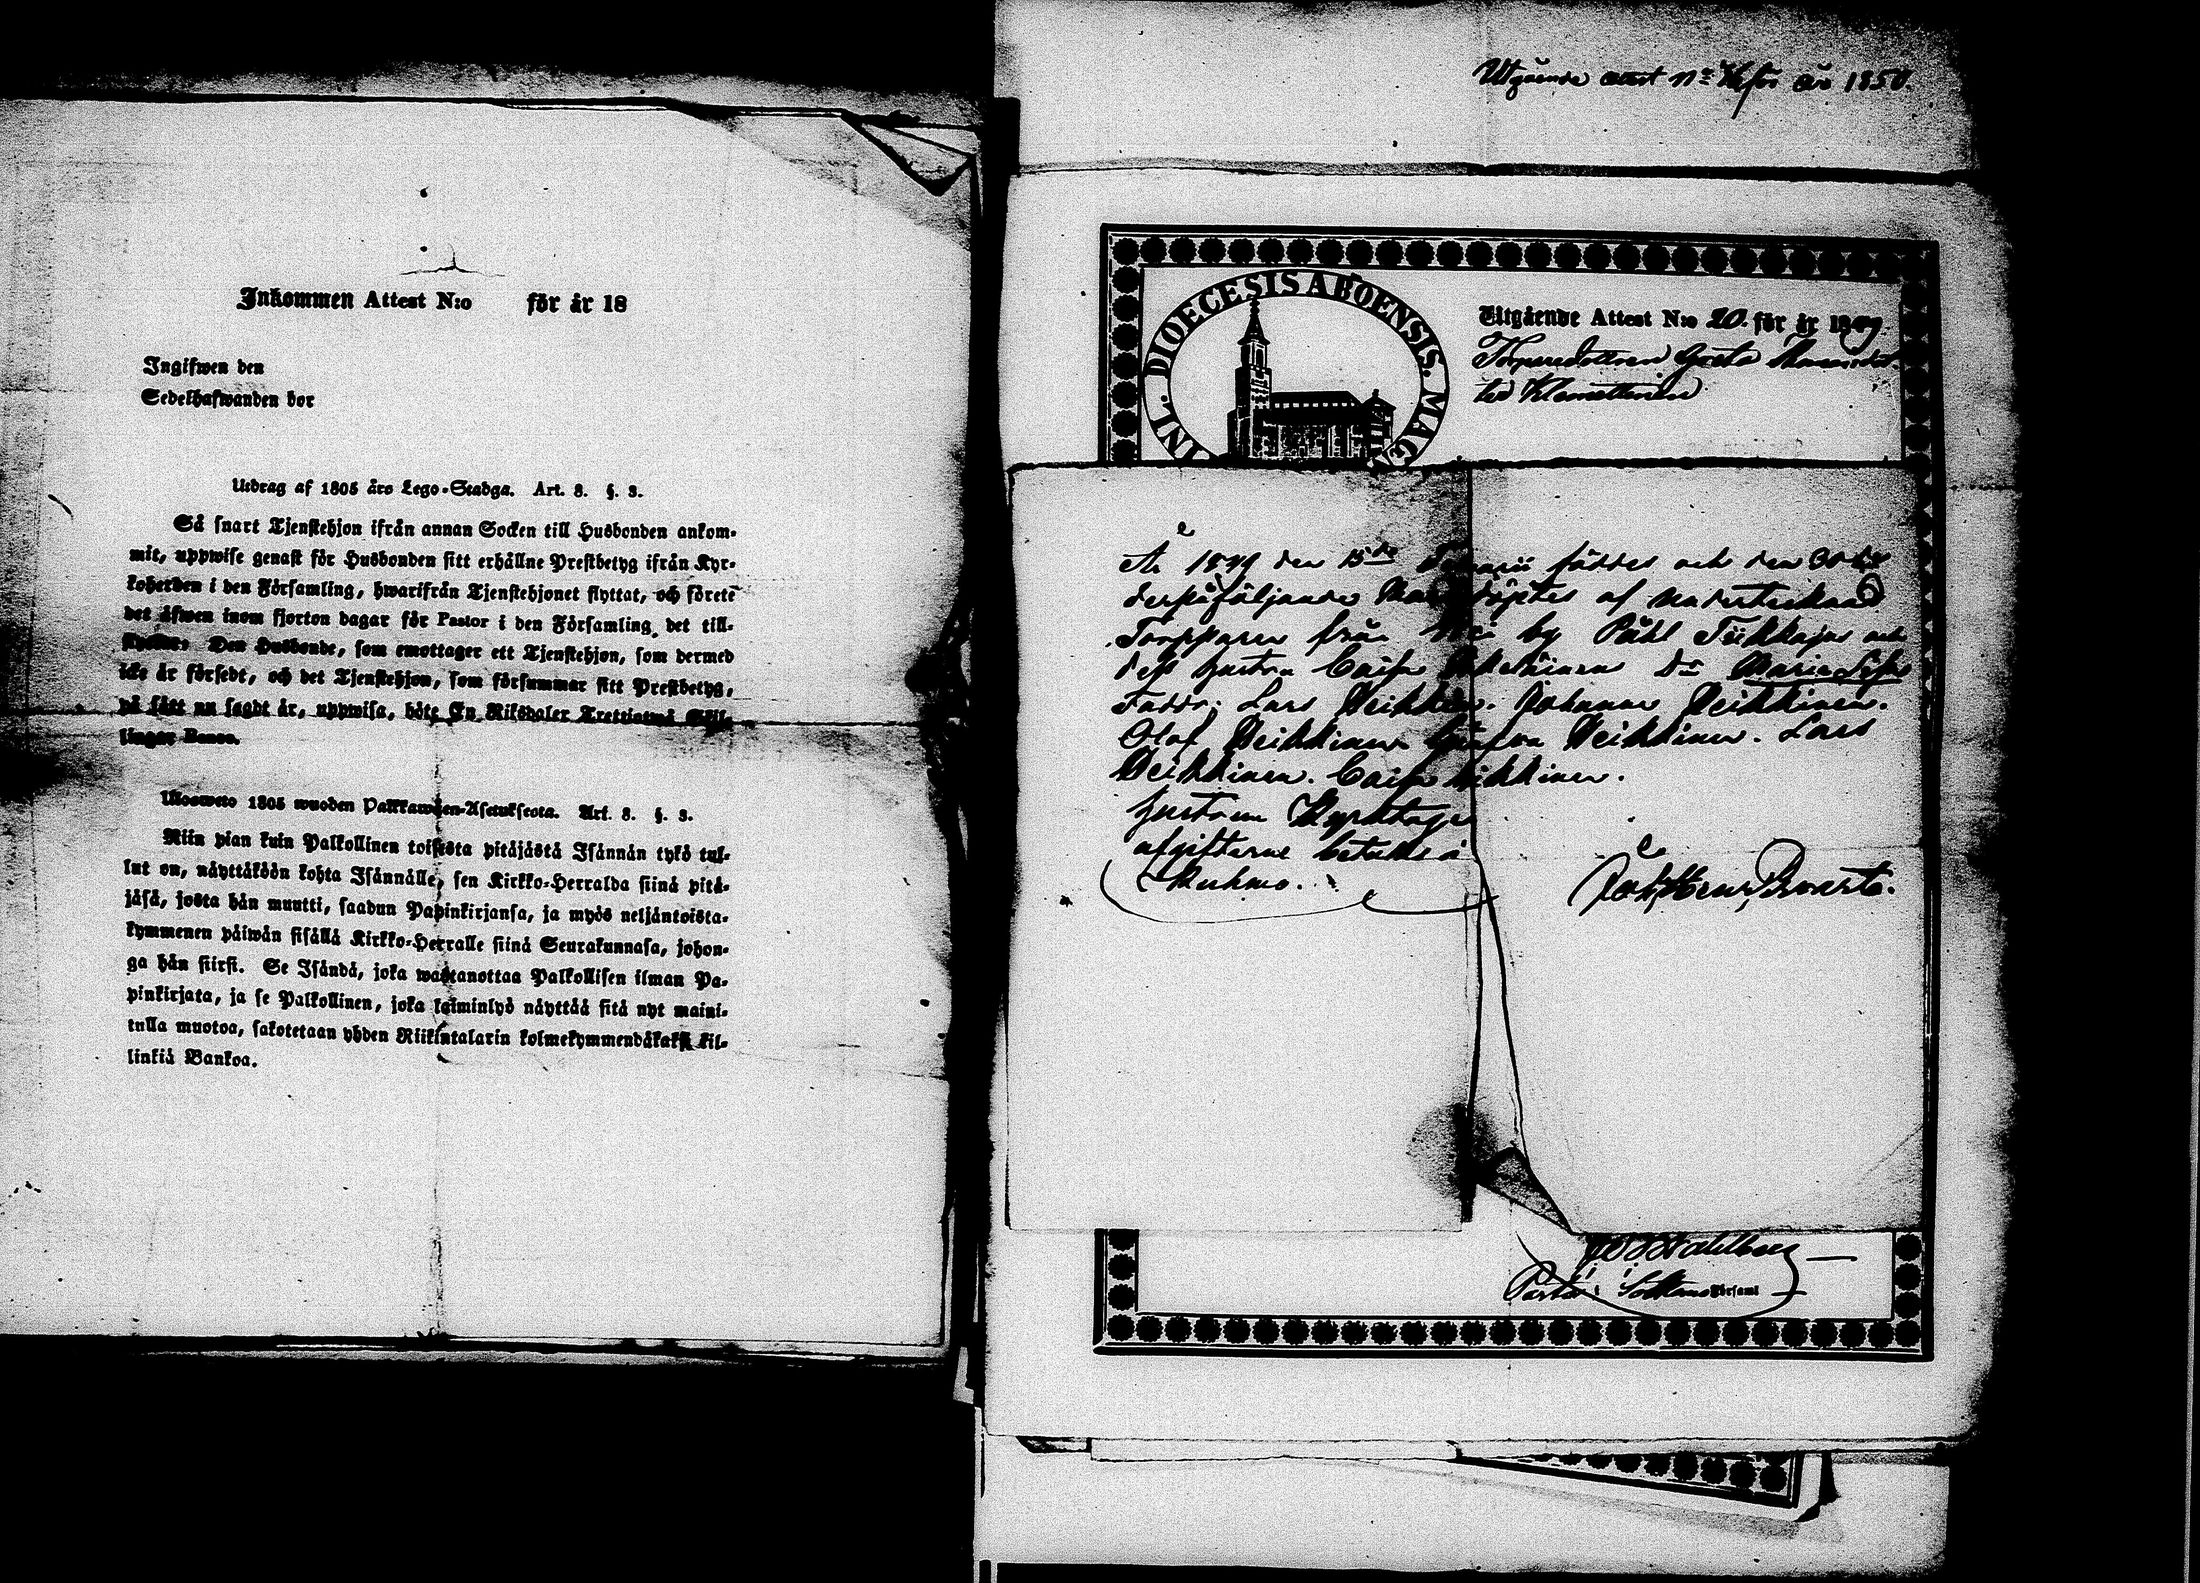 Inkommen Attest N:o för år 18
Ingifwen den
Sedelhafwanden bor
Utdrag af 1805 års Lego-Stadga. Art. 8. §. 3.
Så snart Tjenstehjon ifrån annan Socken till Husbonden ankom-
mit, uppwise genast för Husbonden sitt erhållne Prestbetyg ifrån Kyr-
koherden i den Församling, hwarifrån Tjenstehjonet flyttat, och förete
det äfwen inom fjorton dagar för Pastor i den Församling det till-
flyttar. Den Husbonde, som emottager ett Tjenstehjon, som dermed
icke är försedt, och det Tjenstehjon, som försummar sitt Prestbetyg,
på sätt nu sagdt är, uppwisa, böte En Riksdaler Trettiotwå Skil-
lingar Banco.
Ulosweto 1805 wuoden Palkkawäen-Asetuksesta. Art. 8. §. 3.
Niin pian kuin Palkollinen toisesta pitäjästä Isännän tykö tul-
lut on, näyttäköön kohta Isännälle, sen Kirkko-Herralda siinä pitä-
jäsä, josta hän muutti, saadun Papinkirjansa, ja myös neljäntoista-
kymmenen päiwän sisällä Kirkko-Herralle siinä Seurakunnasa, johon-
ga hän siirsi. Se Isändä, joka wastanottaa Palkollisen ilman Pa-
pinkirjata, ja se Palkollinen, joka laiminlyö näyttää sitä nyt maini-
tulla muotoa, sakotetaan yhden Riikintalarin kolmekymmendäkaksi kil-
linkiä Bankoa.
Utgående attest N:o för år 1850.
DIOECESIS ABOENSIS. MAG
Utgående Attest N:o 20. för år 1849
Greta
År 1849 den 15de föddes och den
derpåföljande döptes af undertecknad
Torpparen från by Påhl Tiikkajas och
dess hustru Caisa Dr Maria
Faddr: Lars Heikkinen. Johanna Heikkinen.
Olof Heikkinen Heikkinen. Lars
Heikkinen. Caisa
Hustrun Kyrktagen
afgifterne betalde i
Kuhmo.
Past. i församl